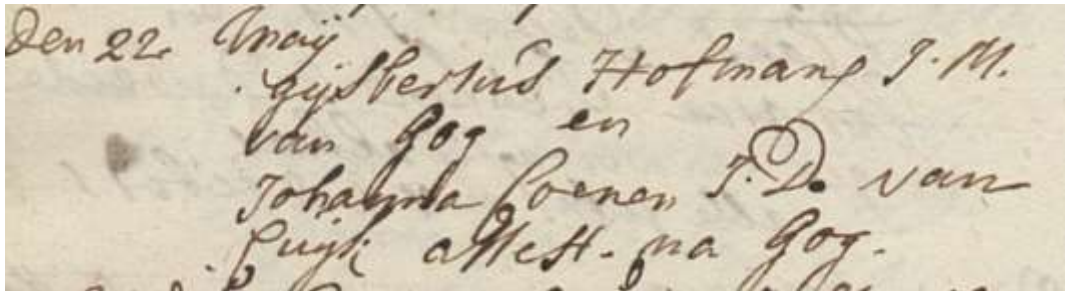 Den 22 Maij
Gijsbertus Hofmans J. M.
van Gog en
Johanna Coenen J. D. van
Cuijk attest. na Gog.